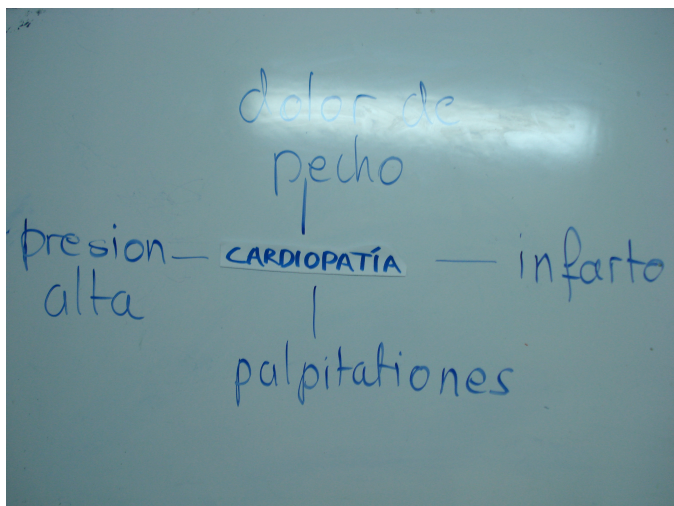 dolor de
pecho
presion
alta
CARDIOPATÍA
infarto
palpitationes